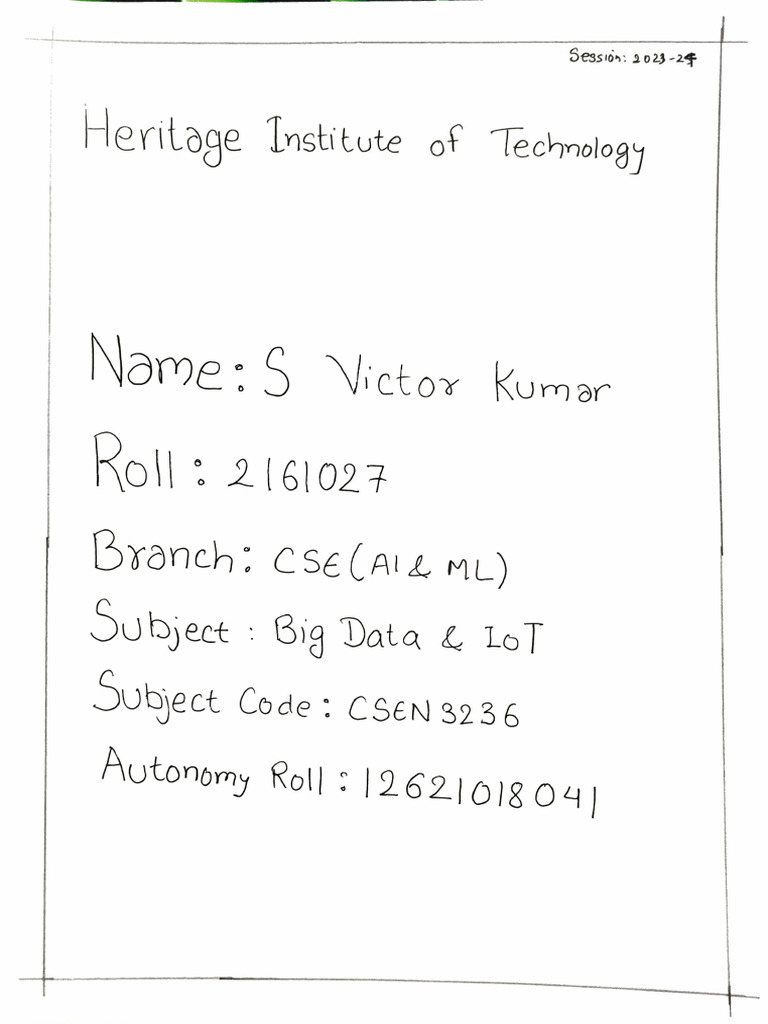 Session: 2023-24
Heritage Institute of Technology
Name: S Victor Kumar
Roll: 2161027
Branch: CSE (AI & ML)
Subject: Big Data & IoT
Subject Code: CSEN 3236
Autonomy Roll: 12621018041